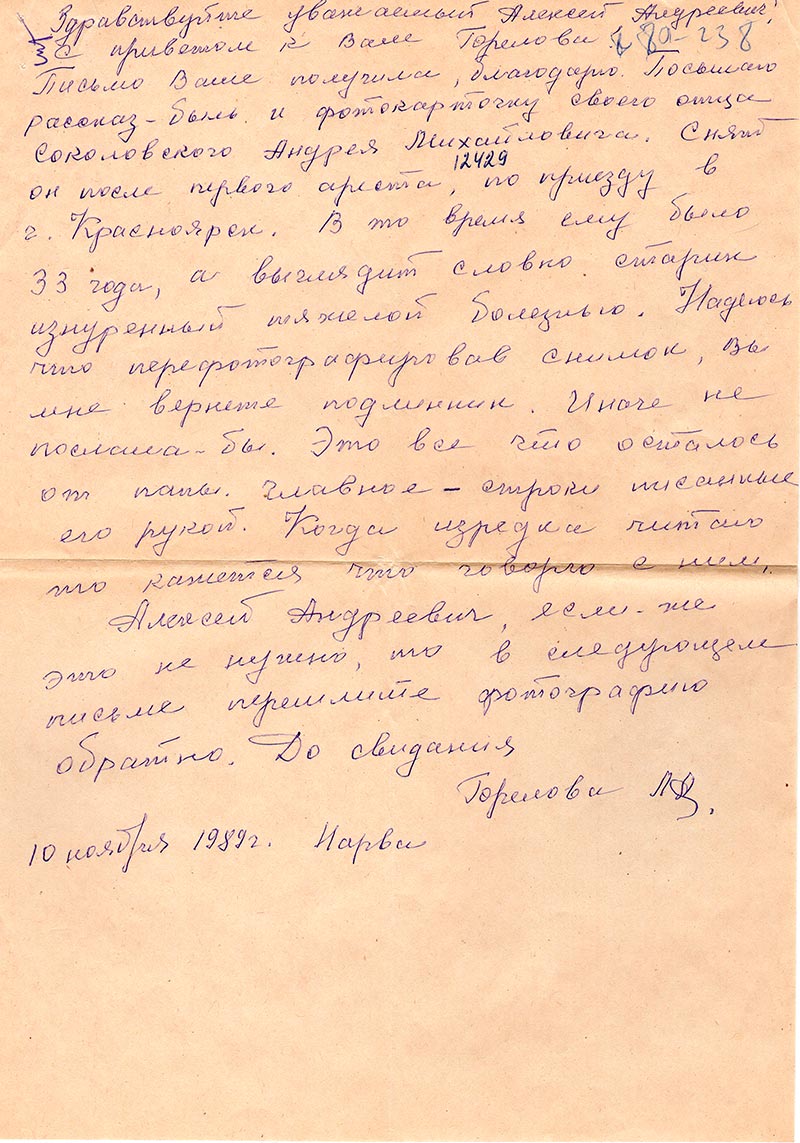 Здравствуйте уважаемый Алексей Андреевич!
С приветом к Вам Горелова. 80-238
Письмо Ваше получила, благодарю. Посылаю
рассказ-быль и фотокарточку своего отца
Соколовского Андрея Михайловича. Снят
12429
он после первого ареста, по приезду в
г. Красноярск. В то время ему было
33 года, а выглядит словно старик
изнуренный тяжелой болезнью. Надеюсь
что перефотографировав снимок, Вы
мне вернете подлинник. Иначе не
послала-бы. Это все что осталось
от папы. Главное – строки писанные
его рукой. Когда изредка читаю
то кажется что говорю с ним.
Алексей Андреевич, если-же
это не нужно, то в следующем
письме перешлите фотографию
обратно. До свидания
Горелова
10 ноября 1989г. Нарва